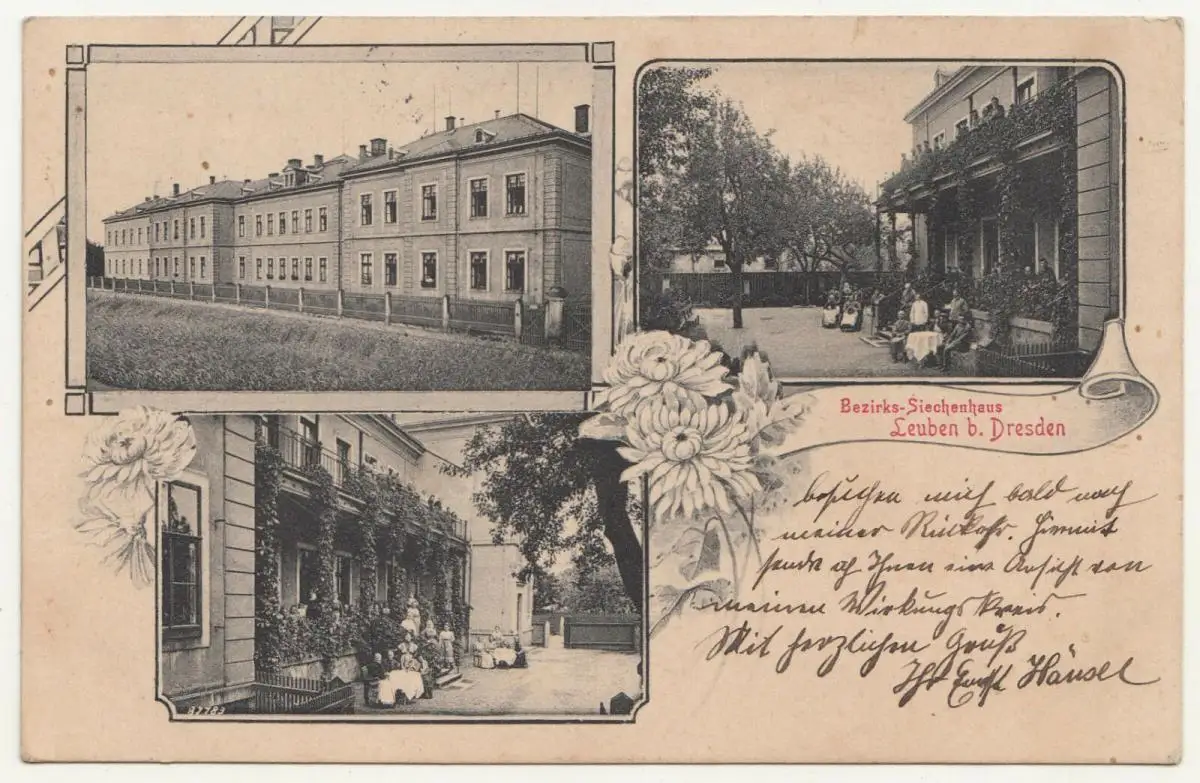 Bezirks-Siechenhaus
Leuben b. Dresden
besuchen mich bald nach
meiner Rückkehr. Hiermit
sende ich Ihnen eine Ansicht von
meinen Wirkungskreis.
Mit herzlichen Gruß
Ihr Ernst Hänsel